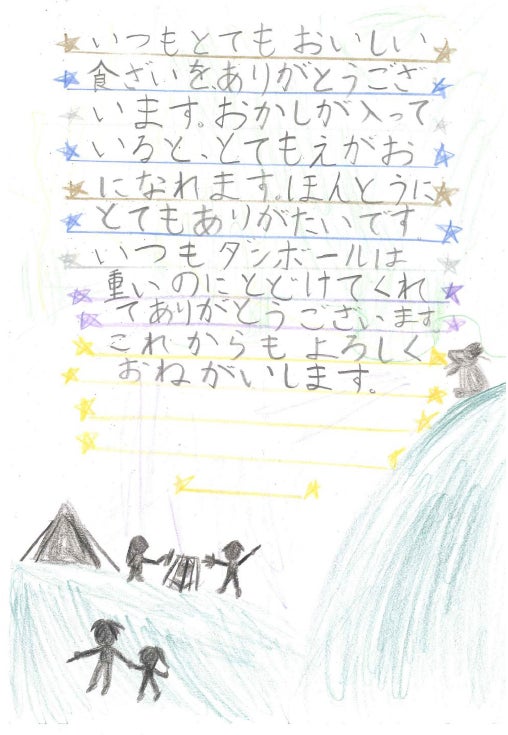 いつもとても おいしい
食ざいを、ありがとうござ
います。おかしが入って
いると、とてもえがお
になれます。ほんとうに
とてもありがたいです。
いつもダンボールは
重いのにとどけてくれ
てありがとうございます。
これからもよろしく
おねがいします。